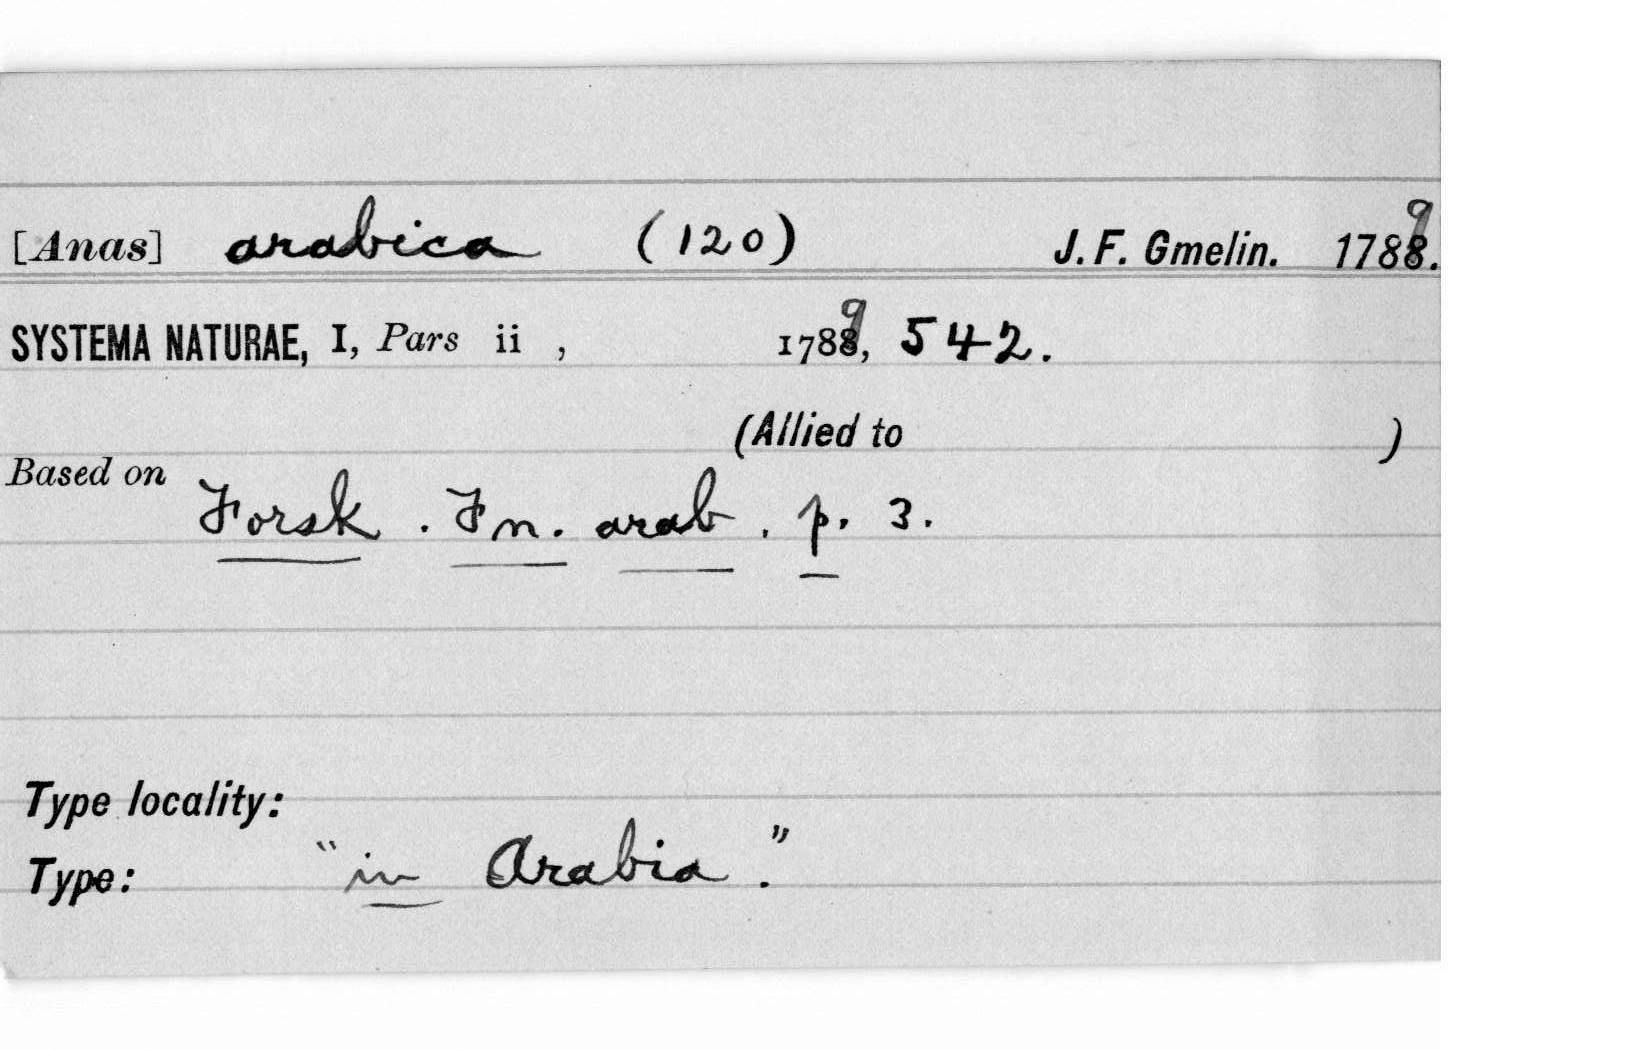 [Anas] arabica (120) J. F. Gmelin. 1789.
SYSTEMA NATURAE, I, Pars ii , 1789, 542.
(Allied to )
Based on
Forsk. Fn. arab. p. 3.
Type locality:
Type: "in Arabia."